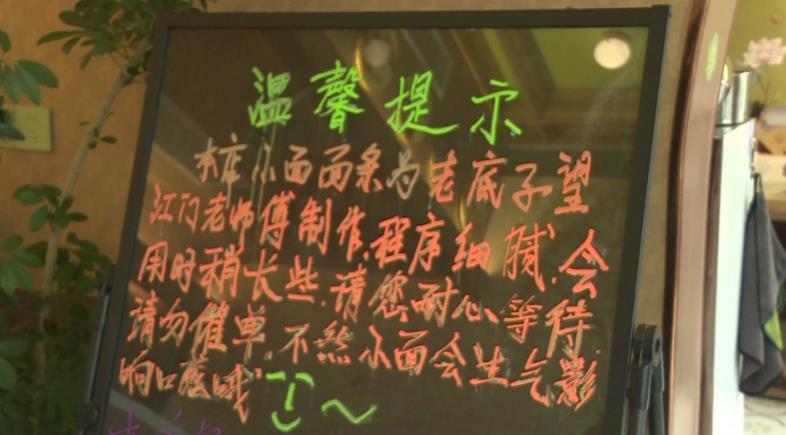 温馨提示
本店小面面条为老底子望
江门老师傅制作,程序细腻,会
用时稍长些,请您耐心等待.
请勿催单,不然小面会生气影
响口感哦~